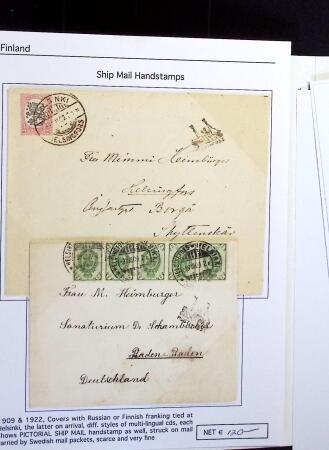 Finland
Ship Mail Handstamps
Fru Mimmi Heimbürger
Helsingfors
Borgå
Frau M. Heimburger
Sanatorium Dr Schamberger
Baden-Baden
Deutschland
1909 & 1922, Covers with Russian or Finnish franking tied at
Helsinki, the latter on arrival, diff. styles of multi-lingual cds, each
shows PICTORIAL SHIP MAIL handstamp as well, struck on mail
carried by Swedish mail packets, scarce and very fine
NET € 120-